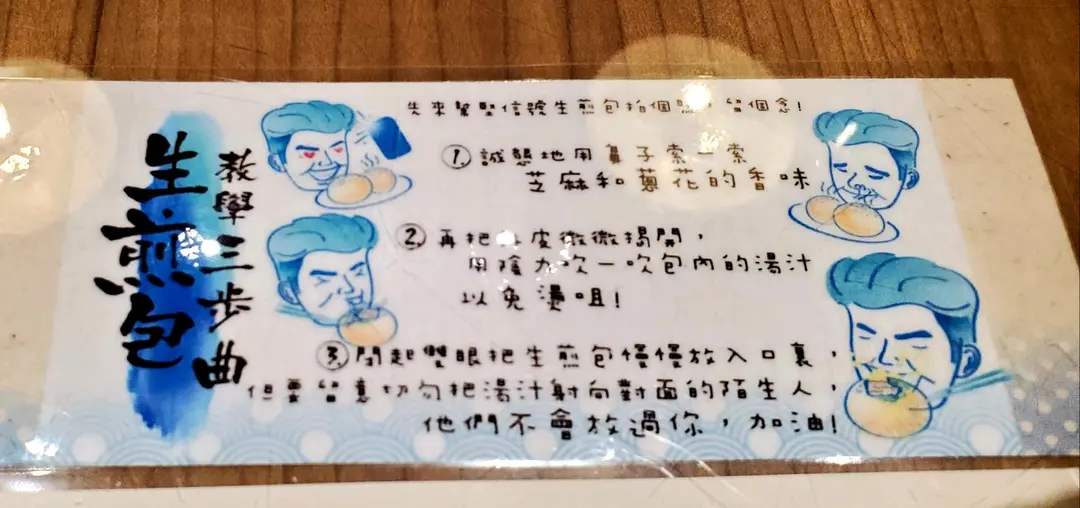 生煎包
教學三步曲
先來幫堅信號生煎包拍個照，留個念!
1. 誠懇地用鼻子索一索
芝麻和蔥花的香味
2. 再把外皮微微揭開，
用陰力吹一吹包內的湯汁
以免燙咀!
3. 閉起雙眼把生煎包慢慢放入口裏，
但要留意切勿把湯汁射向對面的陌生人，
他們不會放過你，加油!